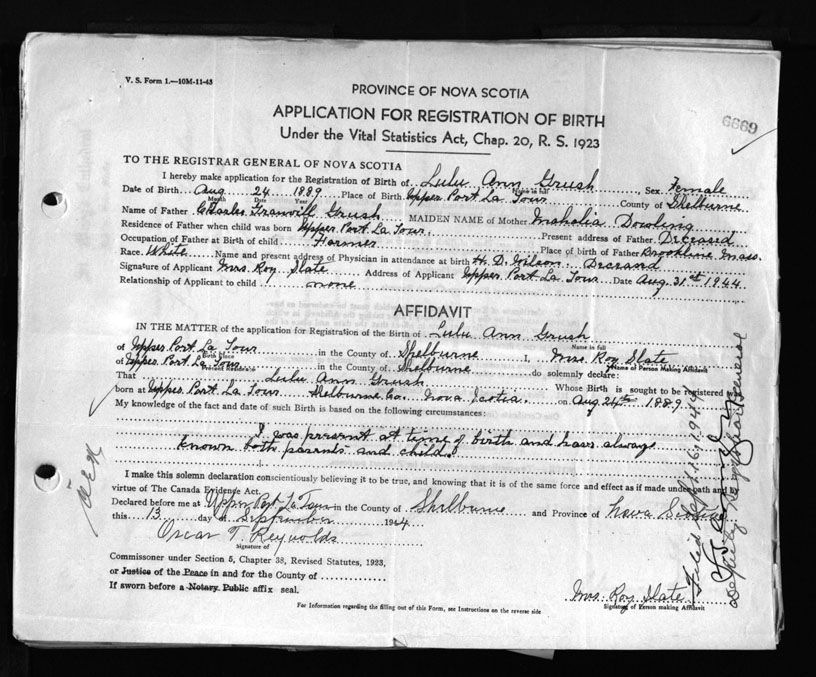 V. S. Form 1.—10M-11-43
PROVINCE OF NOVA SCOTIA
6669
APPLICATION FOR REGISTRATION OF BIRTH
Under the Vital Statistics Act, Chap. 20, R. S. 1923
TO THE REGISTRAR GENERAL OF NOVA SCOTIA
I hereby make application for the Registration of Birth of Lulu Ann Grush, Sex Female
Name in full
Date of Birth Aug 24 1889 Place of Birth Upper Port La Tour County of Shelburne
Month Date Year
Name of Father Charles Granvill Grush MAIDEN NAME of Mother Mahalia Dowling
Residence of Father when child was born Upper Port La Tour Present address of Father Deceased
Occupation of Father at Birth of child Farmer Place of birth of Father Brookline Mass.
Race White Name and present address of Physician in attendance at birth H. D. Wilson Deceased
Signature of Applicant Mrs. Roy Slate Address of Applicant Upper Port La Tour Date Aug. 31st 1944
Relationship of Applicant to child none
AFFIDAVIT
IN THE MATTER of the application for Registration of the Birth of Lulu Ann Grush
Name in full
of Upper Port La Tour in the County of Shelburne I, Mrs Roy Slate
Birth place Name of Person Making Affidavit
of Upper Port La Tour in the County of Shelburne do solemnly declare:
That Lulu Ann Grush Whose Birth is sought to be registered was
born at Upper Port La Tour Shelburne Co. Nova Scotia on Aug 24th 1889
My knowledge of the fact and date of such Birth is based on the following circumstances:
I was present at time of birth and have always
known both parents and child.
I make this solemn declaration conscientiously believing it to be true, and knowing that it is of the same force and effect as if made under oath and by
virtue of The Canada Evidence Act.
Declared before me at Upper Port La Tour in the County of Shelburne and Province of Nova Scotia
this 13 day of September 1944
Oscar T. Reynolds
Signature of
Commissioner under Section 5, Chapter 38, Revised Statutes, 1923,
or Justice of the Peace in and for the County of
If sworn before a Notary Public affix seal.
Mrs. Roy Slate
Signature of Person making Affidavit
For Information regarding the filling out of this Form, see Instructions on the reverse side
Filed Sept. 16, 1944
Deputy Registrar General